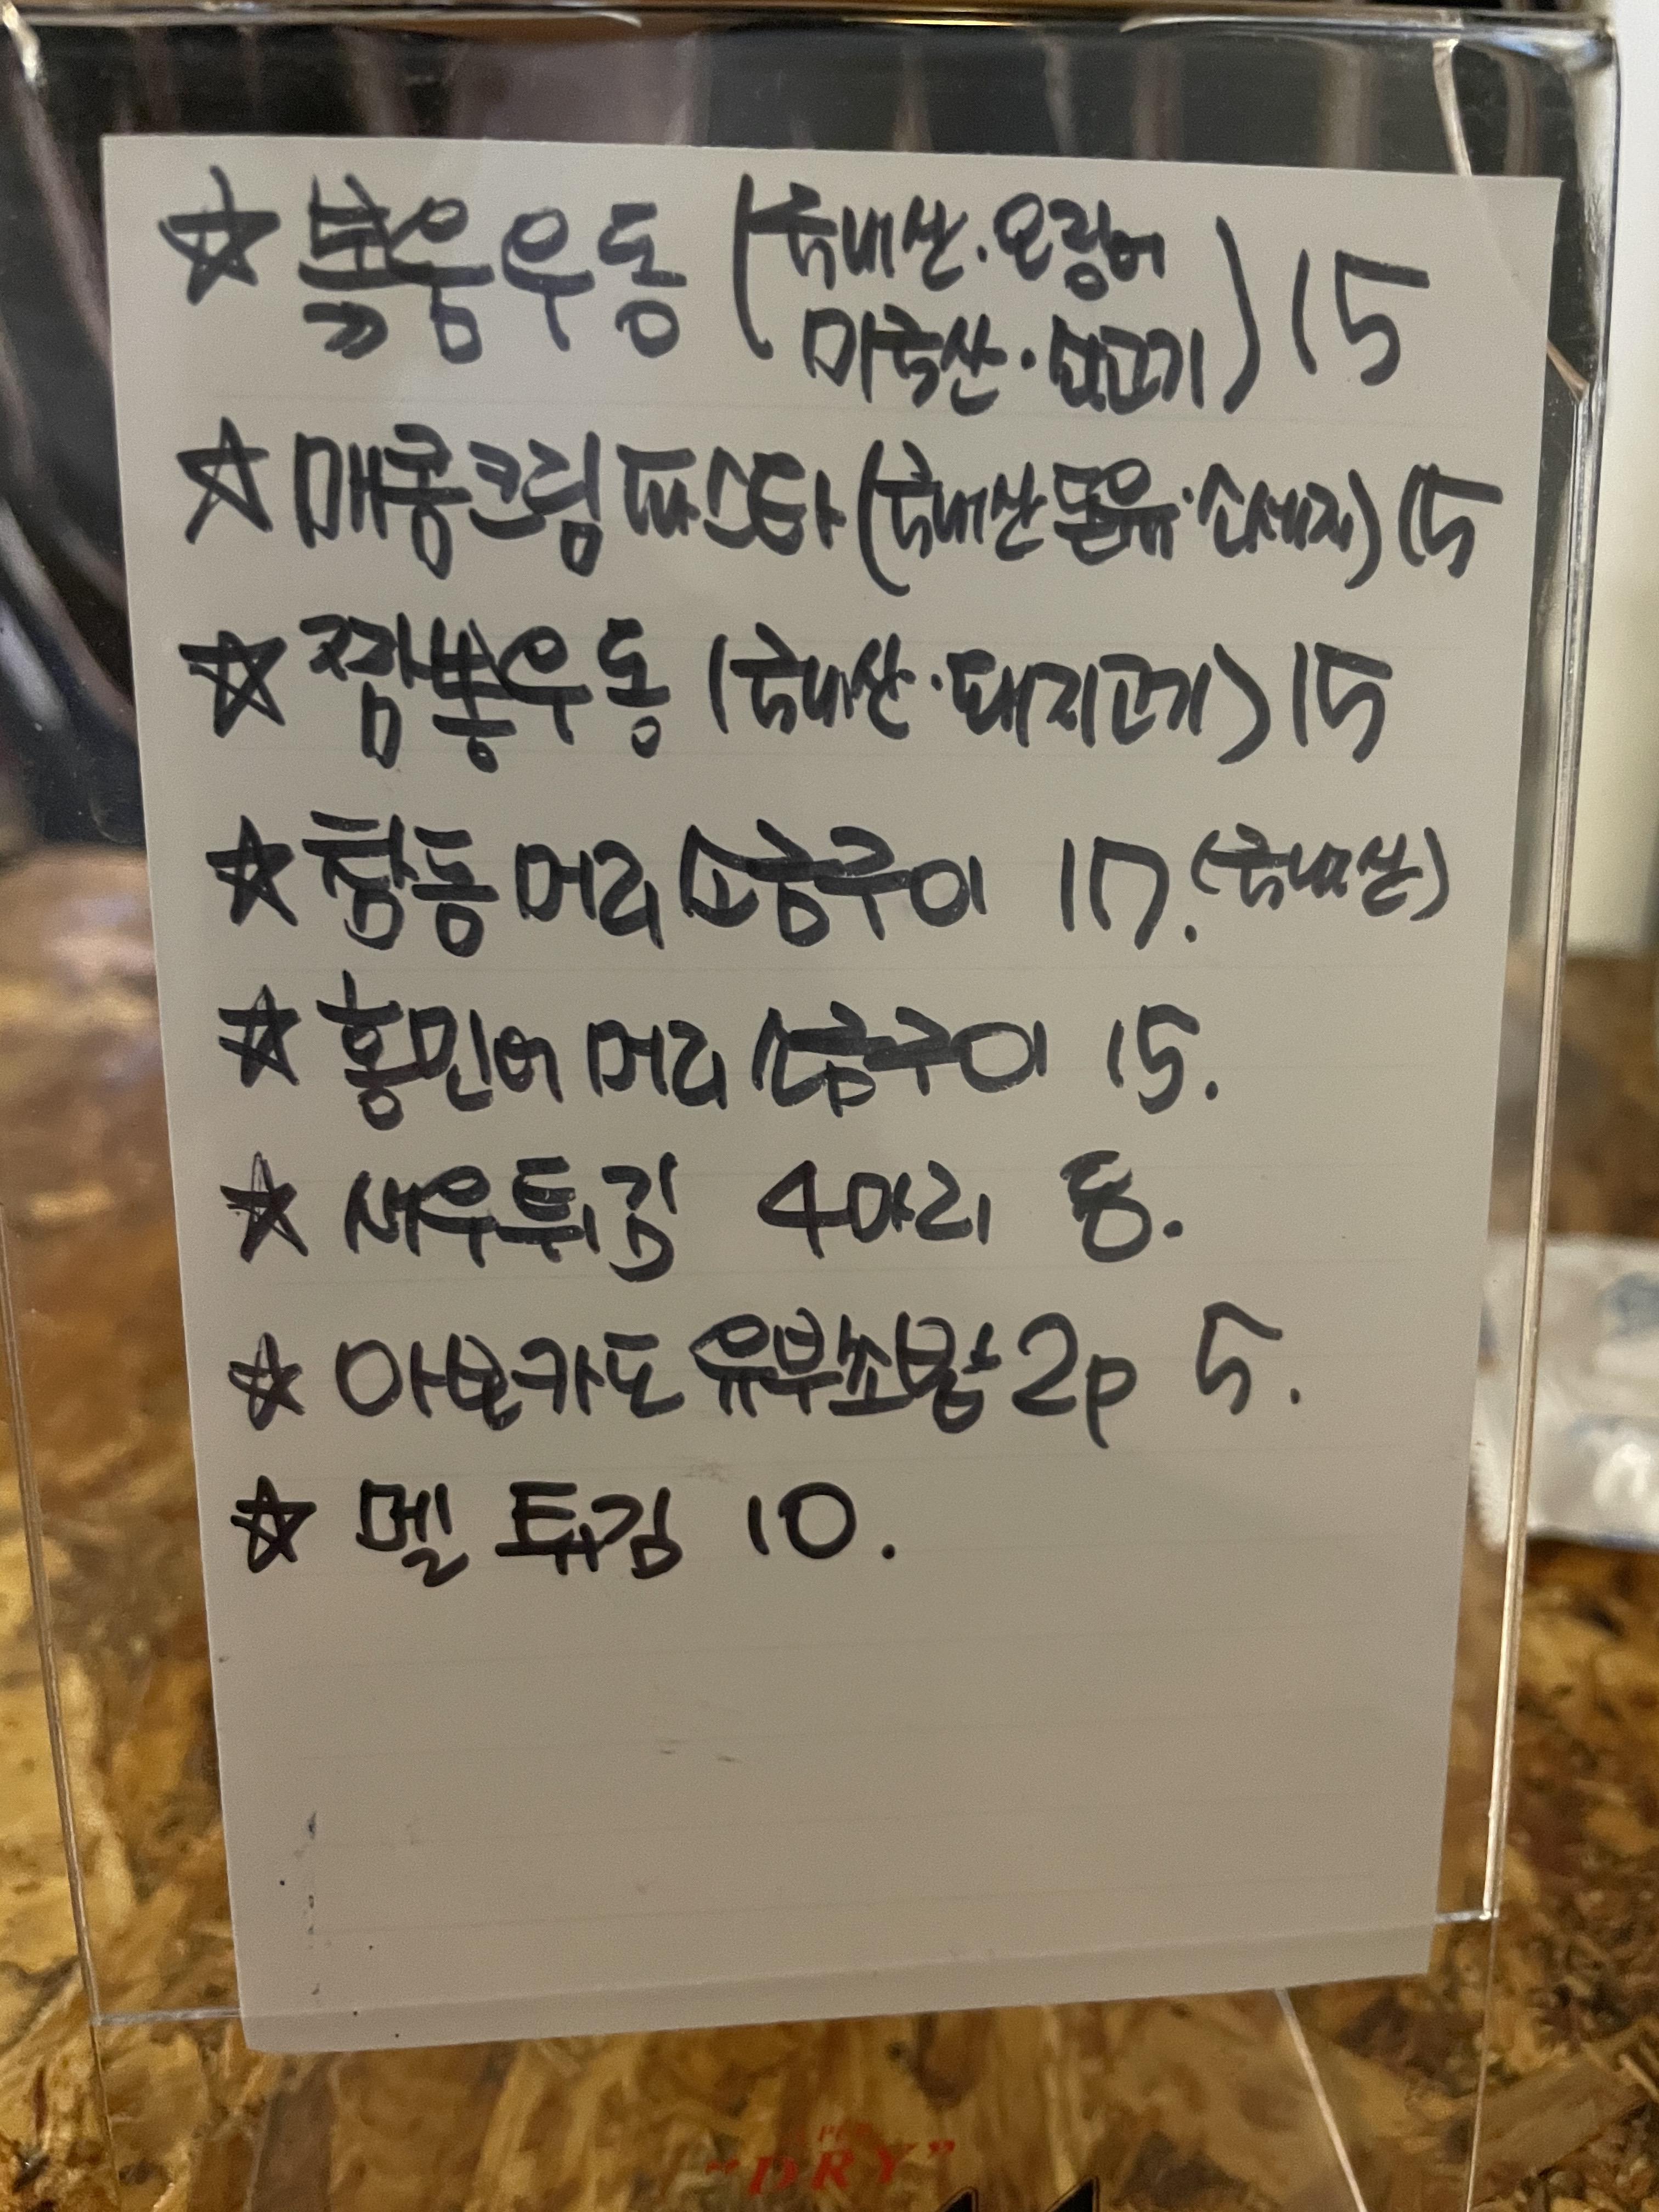 ☆ 볶음우동 (국내산·오징어
미국산·돼고기) 15
☆ 매콤크림 파스타 (국내산 돈육·소세지) 15
☆ 짬뽕우동 (국내산·돼지고기) 15
☆ 참돔 머리 소금구이 17. (국내산)
☆ 홍민어 머리 소금구이 15.
☆ 새우튀김 4마리 8.
☆ 아보카도 유부초밥 2p 5.
☆ 멜 튀김 10.
"DRY"